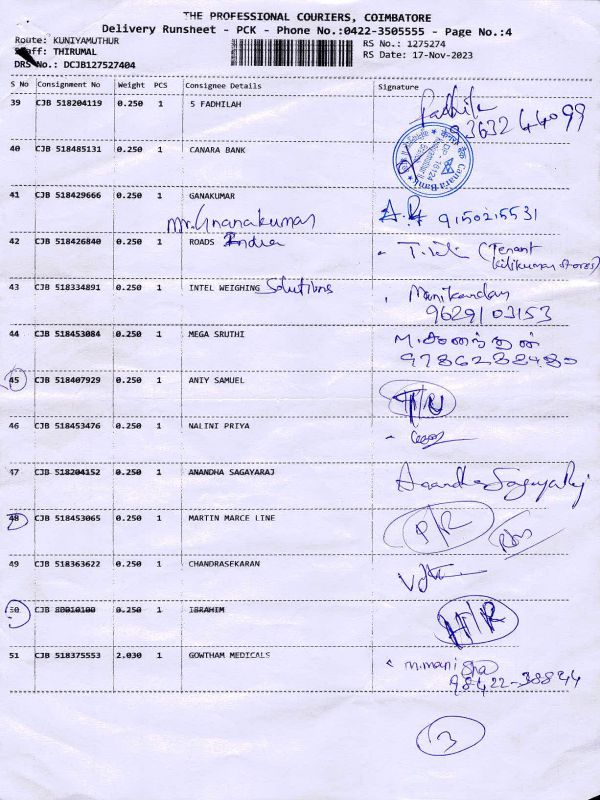 THE PROFESSIONAL COURIERS, COIMBATORE
Delivery Runsheet - PCK - Phone No.:0422-3505555 - Page No.:4
Route: KUNIYAMUTHUR
Staff: THIRUMAL
DRS No.: DCJB127527404
RS No.: 1275274
RS Date: 17-Nov-2023
S No Consignment No Weight PCS Consignee Details Signature
39 CJB 518204119 0.250 1 S FADHILAH Fadhila
9363244099
40 CJB 518485131 0.250 1 CANARA BANK
Canara Bank
41 CJB 518429666 0.250 1 GANAKUMAR 9150215531
Mr. Gnanakumar
42 CJB 518426840 0.250 1 ROADS India (Tenant
kilikumar stores)
43 CJB 518334891 0.250 1 INTEL WEIGHING Solutions Manikandan
9629103153
44 CJB 518453084 0.250 1 MEGA SRUTHI
45 CJB 518407929 0.250 1 ANIY SAMUEL
46 CJB 518453476 0.250 1 NALINI PRIYA
47 CJB 518204152 0.250 1 ANANDHA SAGAYARAJ Anandha Sagayaraj
48 CJB 518453065 0.250 1 MARTIN MARCE LINE P/R
49 CJB 518363622 0.250 1 CHANDRASEKARAN
50 CJB 80010100 0.250 1 IBRAHIM H/R
51 CJB 518375553 2.030 1 GOWTHAM MEDICALS m.mani sha
98422-38844
3